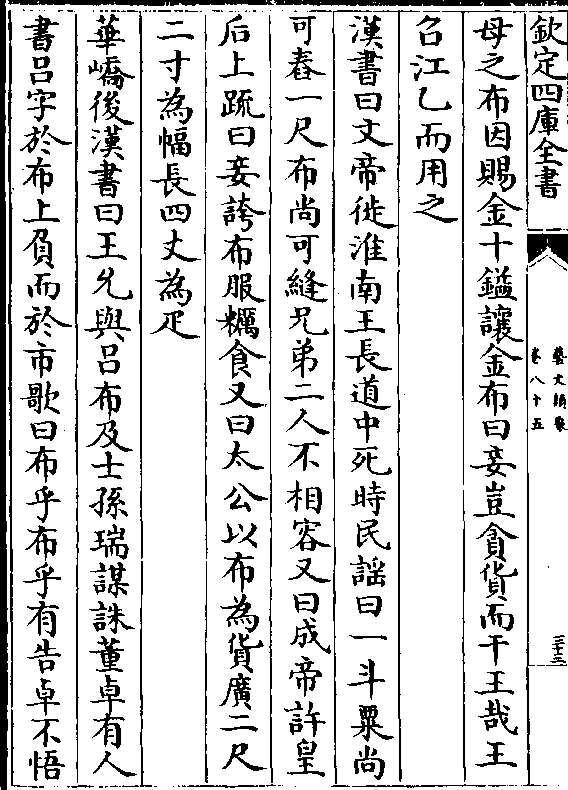 欽定四庫全書
藝文類聚
卷八十五
三十三
母之布因賜金十鎰讓金布曰妾豈貪貨而干王哉王
召江乙而用之
漢書曰文帝徙淮南王長道中死時民謡曰一斗粟尚
可舂一尺布尚可縫兄弟二人不相容又曰成帝許皇
后上疏曰妾誇布服糲食又曰太公以布為貨廣二尺
二寸為幅長四丈為疋
華嶠後漢書曰王允與吕布及士孫瑞謀誅董卓有人
書吕字於布上負而於市歌曰布乎布乎有告卓不悟